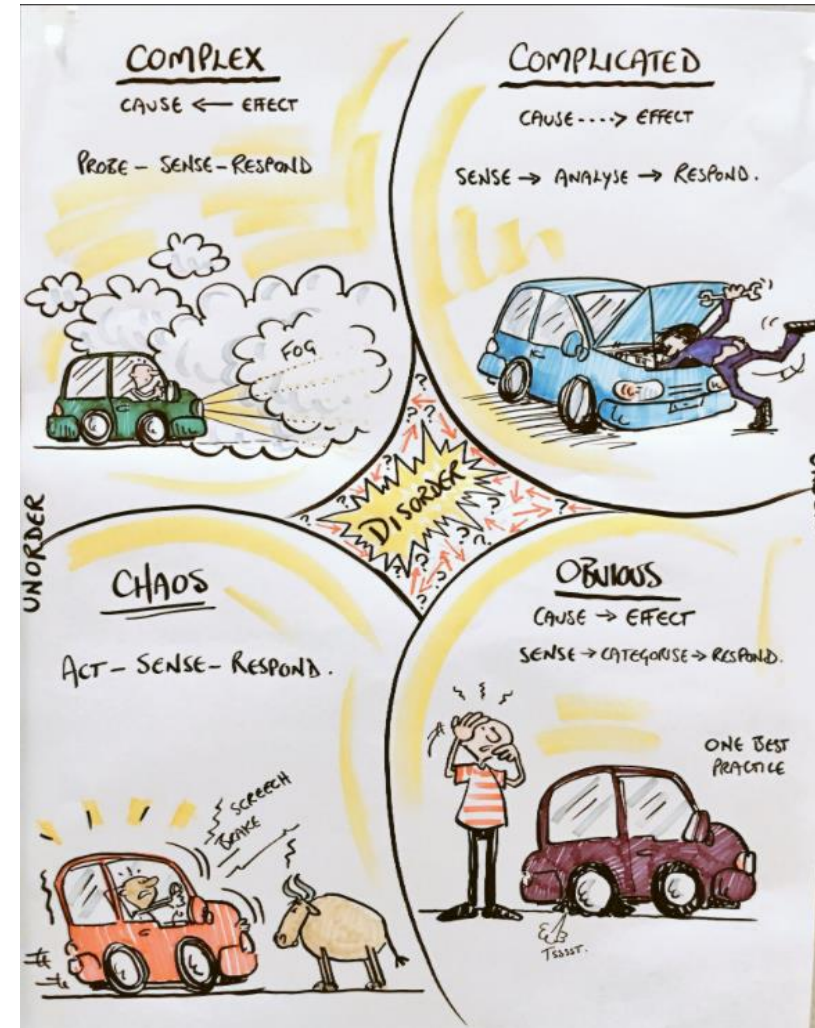 COMPLEX
CAUSE ← EFFECT
PROBE – SENSE – RESPOND
FOG
COMPLICATED
CAUSE ----> EFFECT
SENSE → ANALYSE → RESPOND.
DISORDER
UNORDER
CHAOS
ACT – SENSE – RESPOND.
SCREECH
BRAKE
OBVIOUS
CAUSE → EFFECT
SENSE → CATEGORISE → RESPOND.
ONE BEST
PRACTICE
TSSSST.